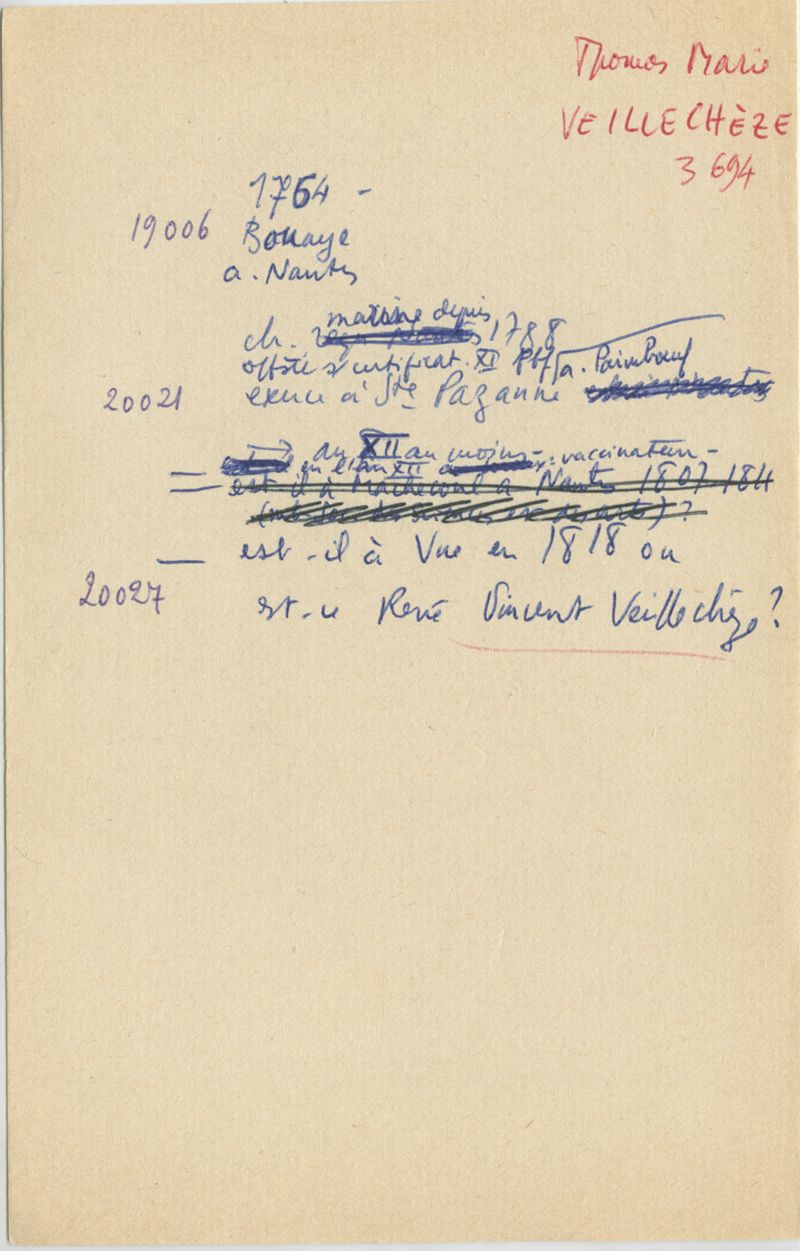 Thomas Marie
VEILLECHÈZE
3 694
1764 -
19006 Bouaye
a. Nantes
marine depuis
ch. 1788
certificat XI a. Paimboeuf
20021 exerce à Ste Pazanne
an XII au moins - vaccinateur -
en l'an XII
est-il à Machecoul a Nantes 1807 1811
est-il à Vue en 1818 ou
20027 est-ce René Vincent Veillechèze?